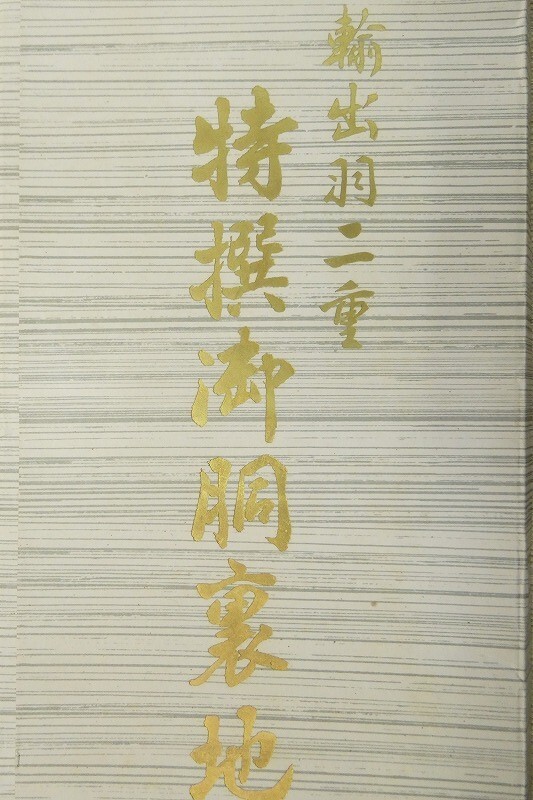 輸出羽二重
特撰御胴裏地